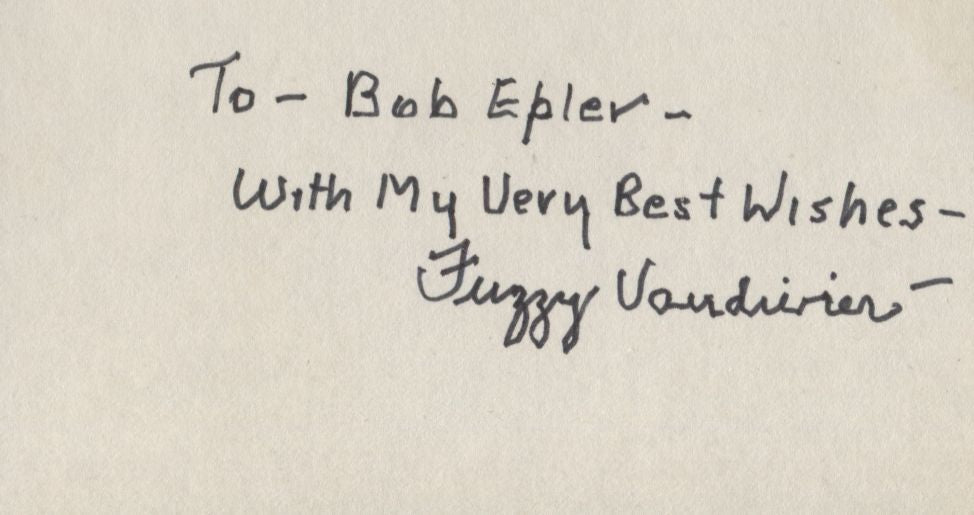 To - Bob Epler -
With My Very Best Wishes -
Fuzzy Vandivier -